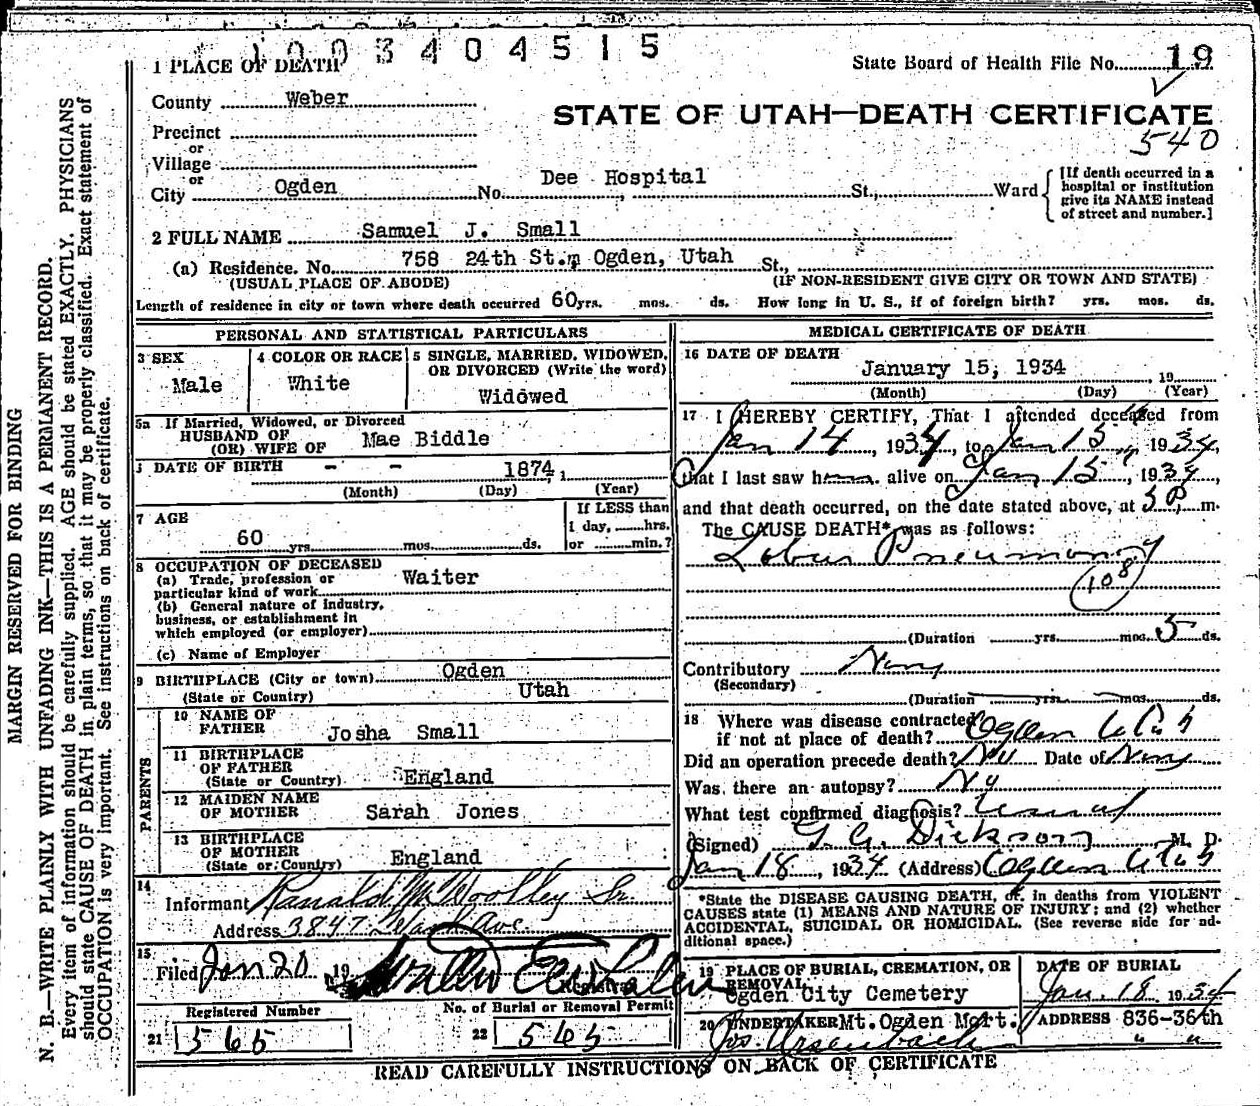 1003404515
1 PLACE OF DEATH
State Board of Health File No. 19
County Weber
STATE OF UTAH—DEATH CERTIFICATE
540
Precinct
or
Village
or
City Ogden No. Dee Hospital St., Ward
[If death occurred in a
hospital or institution
give its NAME instead
of street and number.]
2 FULL NAME Samuel J. Small
(a) Residence. No. 758 24th St., Ogden, Utah St.,
(USUAL PLACE OF ABODE) (IF NON-RESIDENT GIVE CITY OR TOWN AND STATE)
Length of residence in city or town where death occurred 60 yrs. mos. ds. How long in U. S., if of foreign birth? yrs. mos. ds.
PERSONAL AND STATISTICAL PARTICULARS
3 SEX
Male
4 COLOR OR RACE
White
5 SINGLE, MARRIED, WIDOWED,
OR DIVORCED (Write the word)
Widowed
5a If Married, Widowed, or Divorced
HUSBAND OF
(OR) WIFE OF Mae Biddle
DATE OF BIRTH - - 1874,
(Month) (Day) (Year)
7 AGE
60 yrs. mos. ds.
If LESS than
1 day, hrs.
or min.?
8 OCCUPATION OF DECEASED
(a) Trade, profession or
particular kind of work Waiter
(b) General nature of industry,
business, or establishment in
which employed (or employer)
(c) Name of Employer
9 BIRTHPLACE (City or town) Ogden
(State or Country) Utah
PARENTS
10 NAME OF
FATHER Josha Small
11 BIRTHPLACE
OF FATHER
(State or Country) England
12 MAIDEN NAME
OF MOTHER Sarah Jones
13 BIRTHPLACE
OF MOTHER
(State or Country) England
14
Informant Ranald M. Woolley Sr.
Address 3847 Ave.
15
Filed Jan 20 19
Registrar
Registered Number
21 565
No. of Burial or Removal Permit
22 565
MEDICAL CERTIFICATE OF DEATH
16 DATE OF DEATH
January 15, 1934, 19
(Month) (Day) (Year)
17 I HEREBY CERTIFY, That I attended deceased from
Jan 14, 1934, to Jan 15, 1934,
that I last saw h alive on Jan 15, 1934,
and that death occurred, on the date stated above, at 5 P. m.
The CAUSE DEATH* was as follows:
Lobar Pneumonia
108
(Duration yrs. mos. 5 ds.
Contributory None
(Secondary)
(Duration yrs. mos. ds.
18 Where was disease contracted
if not at place of death? Ogden Utah
Did an operation precede death? No Date of None
Was there an autopsy? No
What test confirmed diagnosis? Usual
(Signed) G. G. Dickson M. D.
Jan 18, 1934 (Address) Ogden Utah
*State the DISEASE CAUSING DEATH, or, in deaths from VIOLENT
CAUSES state (1) MEANS AND NATURE OF INJURY; and (2) whether
ACCIDENTAL, SUICIDAL OR HOMICIDAL. (See reverse side for ad-
ditional space.)
19 PLACE OF BURIAL, CREMATION, OR
REMOVAL
Ogden City Cemetery
DATE OF BURIAL
Jan. 18 1934
20 UNDERTAKER Mt. Ogden Mort.
ADDRESS 836-36th
" "
READ CAREFULLY INSTRUCTIONS ON BACK OF CERTIFICATE
MARGIN RESERVED FOR BINDING
N. B.—WRITE PLAINLY WITH UNFADING INK—THIS IS A PERMANENT RECORD.
Every item of information should be carefully supplied. AGE should be stated EXACTLY. PHYSICIANS
should state CAUSE OF DEATH in plain terms, so that it may be properly classified. Exact statement of
OCCUPATION is very important. See instructions on back of certificate.